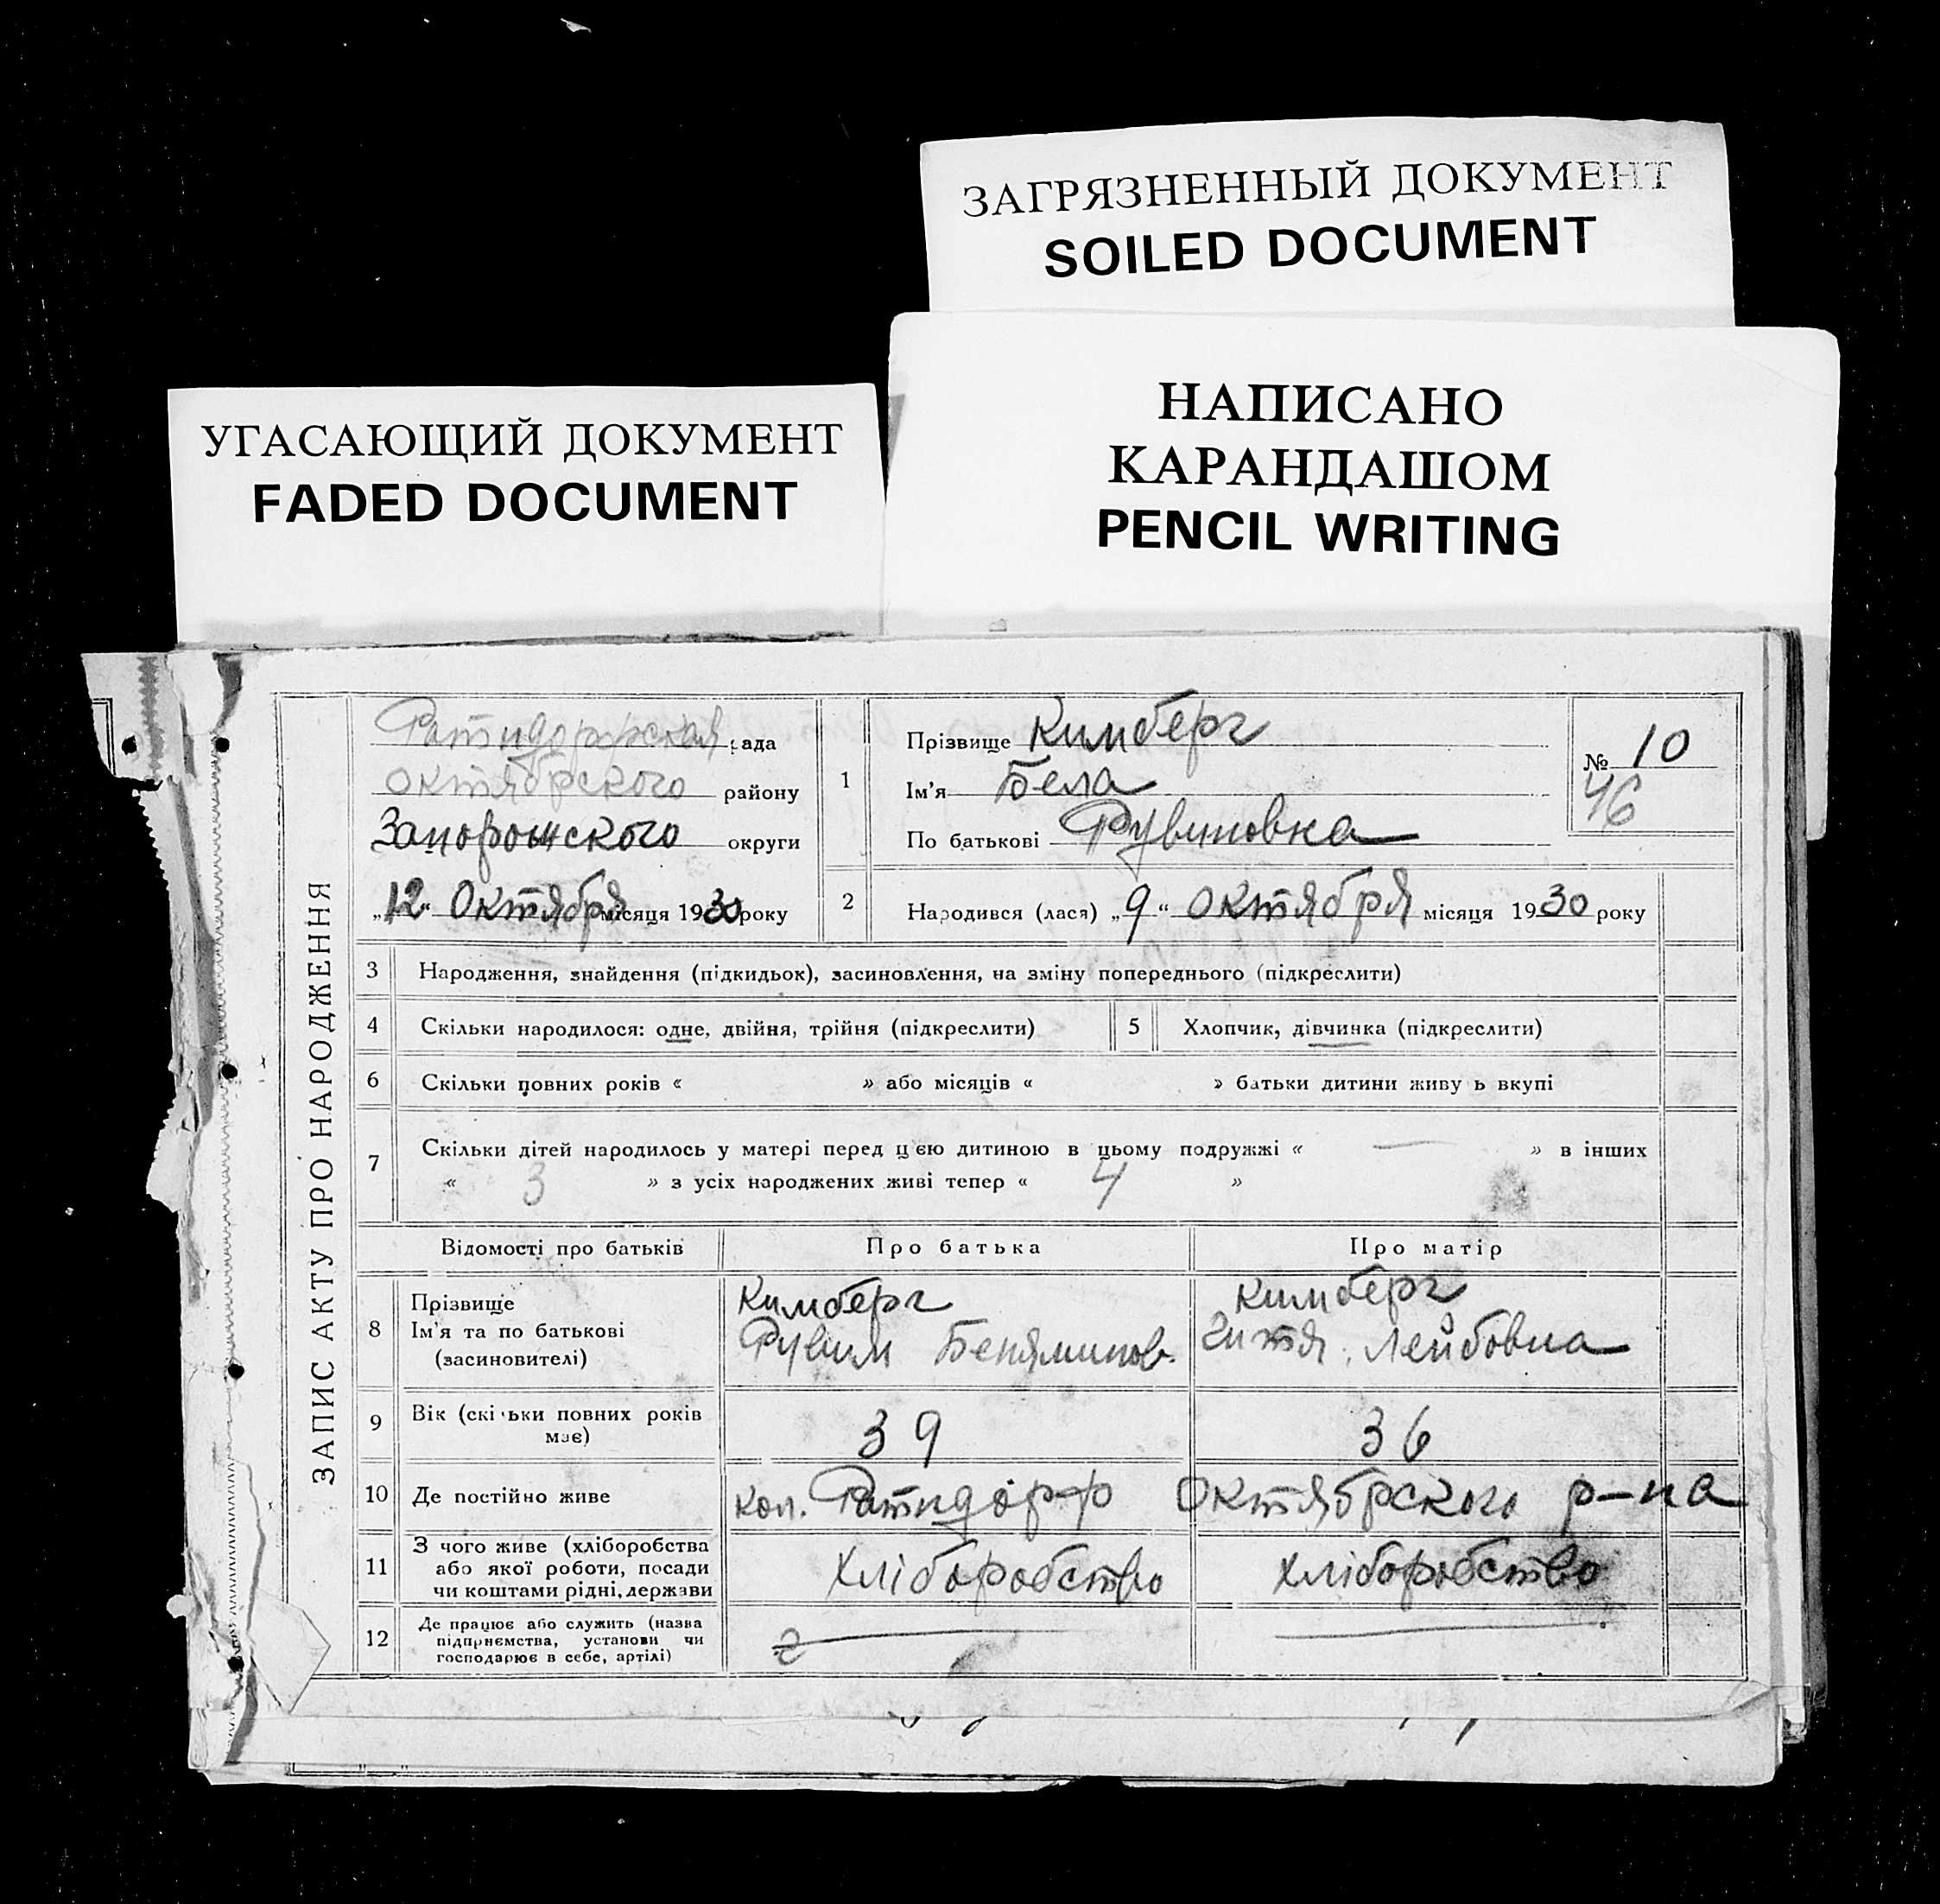 ЗАГРЯЗНЕННЫЙ ДОКУМЕНТ
SOILED DOCUMENT
НАПИСАНО
КАРАНДАШОМ
PENCIL WRITING
УГАСАЮЩИЙ ДОКУМЕНТ
FADED DOCUMENT
ЗАПИС АКТУ ПРО НАРОДЖЕННЯ
Ратндорфская рада
Октябрского району
Запорожского округи
„12“ Октября місяця 1930 року
1
Прізвище Кимберг
Ім'я Бела
По батькові Рувиновна
№ 10
46
2 Народився (лася) „9“ Октября місяця 1930 року
3 Народження, знайдення (підкидьок), засиновлення, на зміну попереднього (підкреслити)
4 Скільки народилося: одне, двійня, трійня (підкреслити)
5 Хлопчик, дівчинка (підкреслити)
6 Скільки повних років « » або місяців « » батьки дитини живу ь вкупі
7 Скільки дітей народилось у матері перед цією дитиною в цьому подружжі « — » в інших
« 3 » з усіх народжених живі тепер « 4 »
Відомості про батьків Про батька Про матір
8 Прізвище
Ім'я та по батькові
(засиновителі)
Кимберг
Рувим Беняминов.
Кимберг
Гитя Лейбовна
9 Вік (скільки повних років
має)
39 36
10 Де постійно живе кол. Ратндорф Октябрского р-на
11 З чого живе (хліборобства
або якої роботи, посади
чи коштами рідні, держави
Хліборобство Хліборобство
12 Де працює або служить (назва
підприємства, установи чи
господарює в себе, артілі)